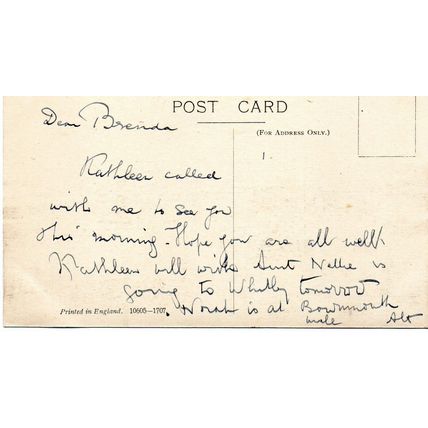 POST CARD
(For Address Only.)
Dear Brenda
Kathleen called
with me to see you
this morning. Hope you are all well.
Kathleen will write Aunt Nellie is
going to Whitby tomorrow
Norah is at Bournmouth
Printed in England. 10605—1707.